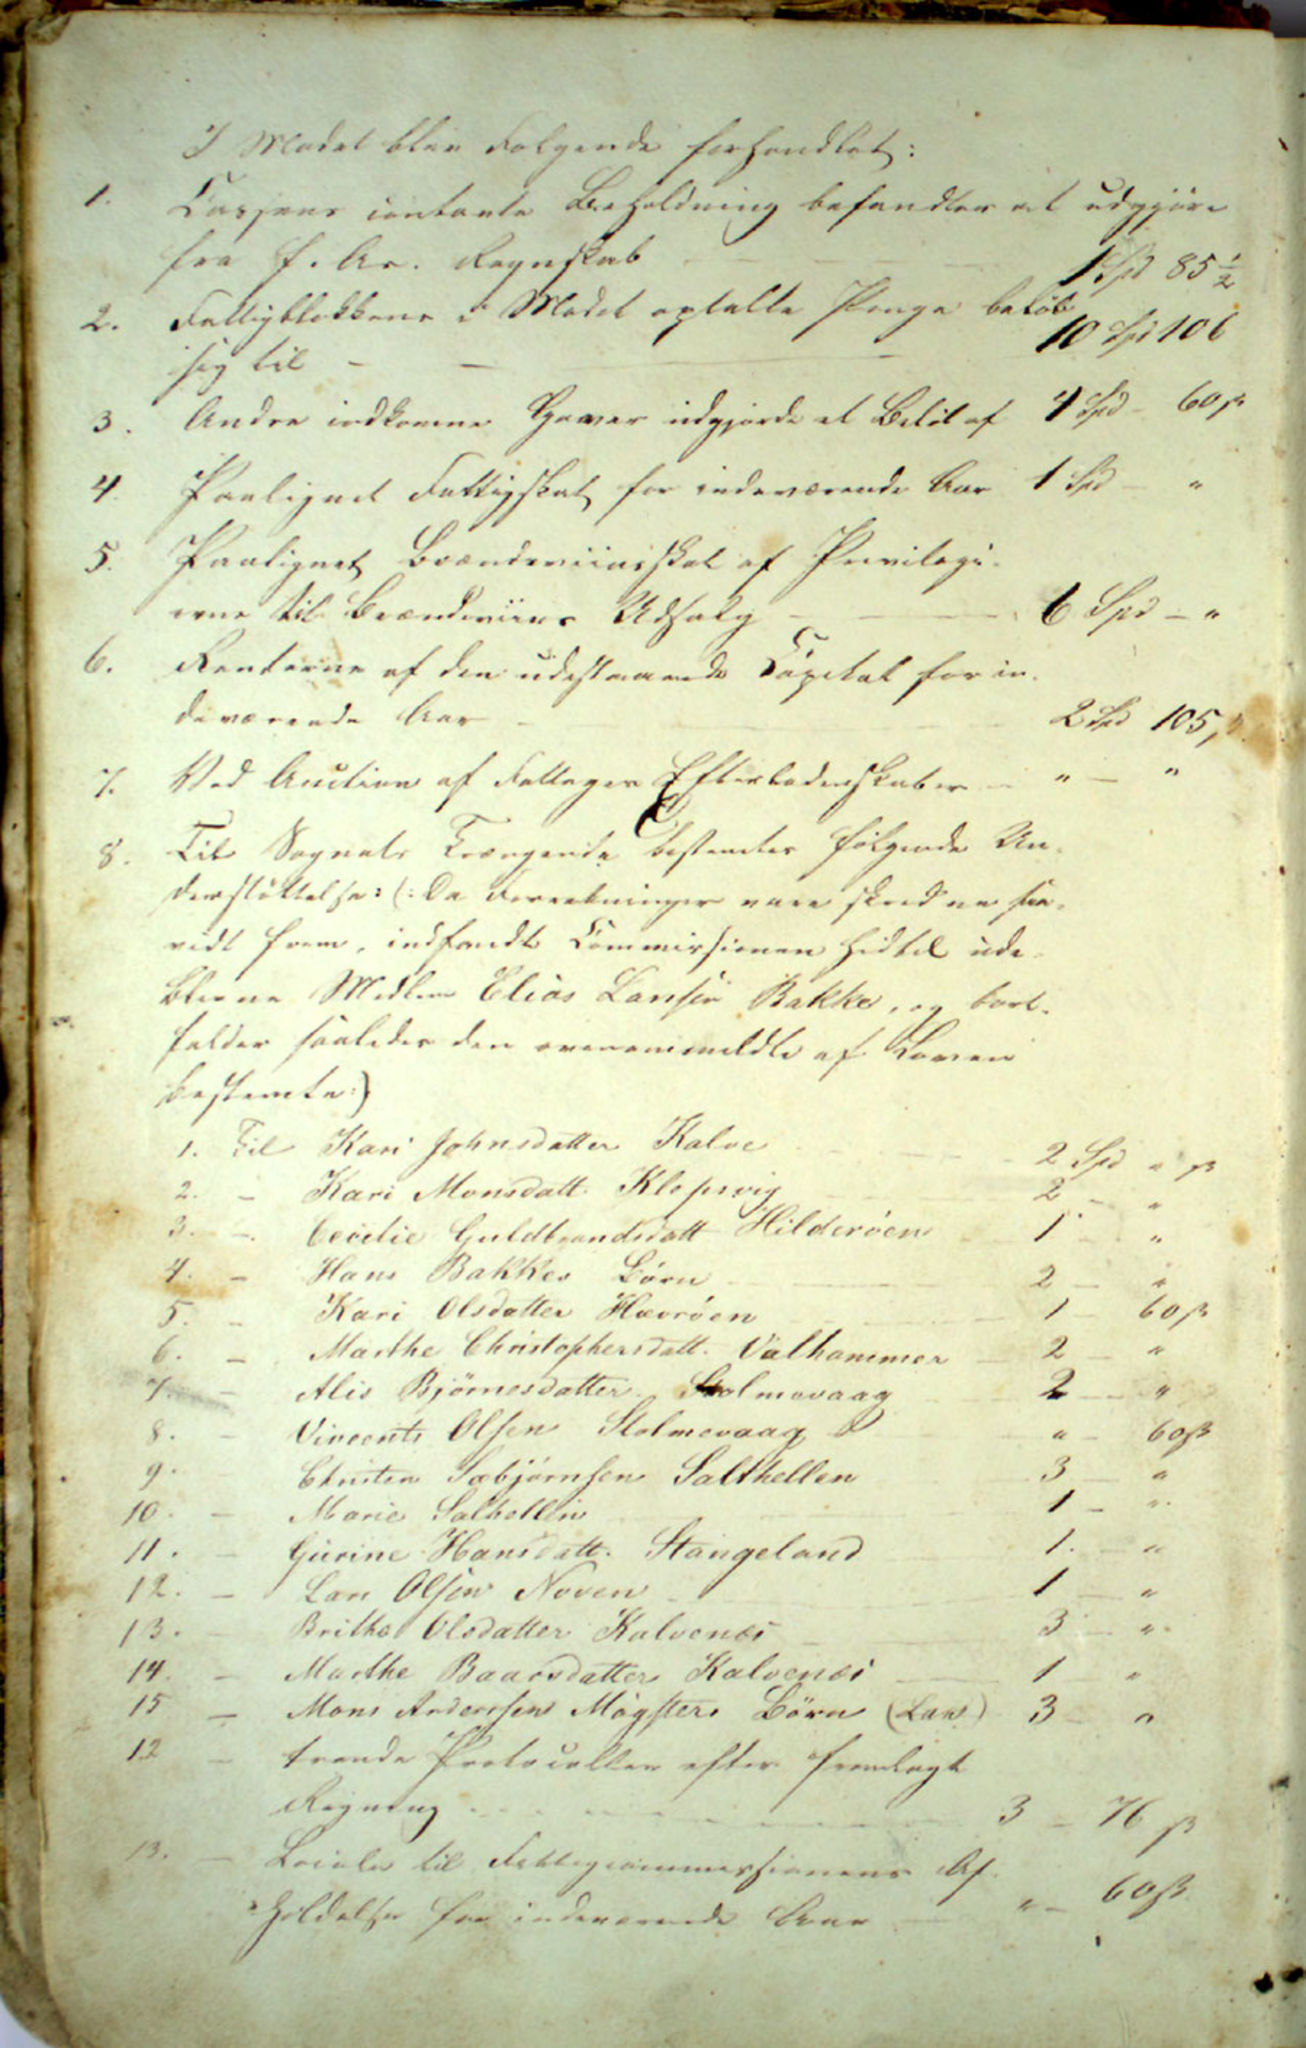 I Mødet blev Følgende forhandlet:
1. Cassens contante Beholdning befandtes at udgjøre
fra f. Aar. Regnskab — 1 Spd 85 1/2
2. Fattigblokkene i Mødet optalte Penge beløb
sig til — — — 10 Spd 106
3. Andre indkomne Gaver udgjorde et Beløb af 4 Spd - 60 ß
4. Paalignet Fattigskat for indeværende Aar 1 Spd - "
5. Paalignet Brændeviinsskat af Privilegi-
erne til Brændeviins Udsalg — 6 Spd - "
6. Renterne af den udestaaende Capital for in-
deværende Aar — 2 Spd 105,
7. Ved Auction af Fattiges Efterladenskaber - " — "
8. Til Sognets Trængende bestemtes følgende Un-
derstøttelse: (: Da Forretningen vare skredne saa-
vidt frem, indfandt Commissionens hidtil ude-
blevne Medlem Elias Larsen Bakke, og bort-
falder saaledes den ovenanmeldte af Loven
bestemte:)
1. Til Kari Johnsdatter Kalve — 2 Spd " ß
2. - Kari Monsdatt. Klepsvig — 2 - "
3. - Cecilie Guldbrandsdatt Hilderöen - 1 - "
4. - Hans Bakkes Børn — 2 - "
5. - Kari Olsdatter Hevröen — 1 - 60 ß
6. - Marthe Christophersdatt. Valhammer - 2 - "
7. - Alis Bjørnesdatter Stolmevaag 2 - "
8. - Vincents Olsen Stolmevaag " - 60 ß
9. - Christen Sæbjørnsen Salthellen 3 - "
10. - Marie Salhellen 1 - "
11. - Gurine Hansdatt. Stangeland 1. - "
12. - Lars Olsen Noven 1 - "
13. - Brithe Olsdatter Kalvenæs 3 - "
14. - Marthe Baarsdatter Kalvenæs 1 "
15 - Mons Andersens Møgsters Börn (Lån) 3 - "
12 - trende Protocoller efter fremlagt
Regning — 3 - 76 ß
13. - Locale til Fattigcommissionens Af-
holdelse for indeværende Aar — " - 60 ß